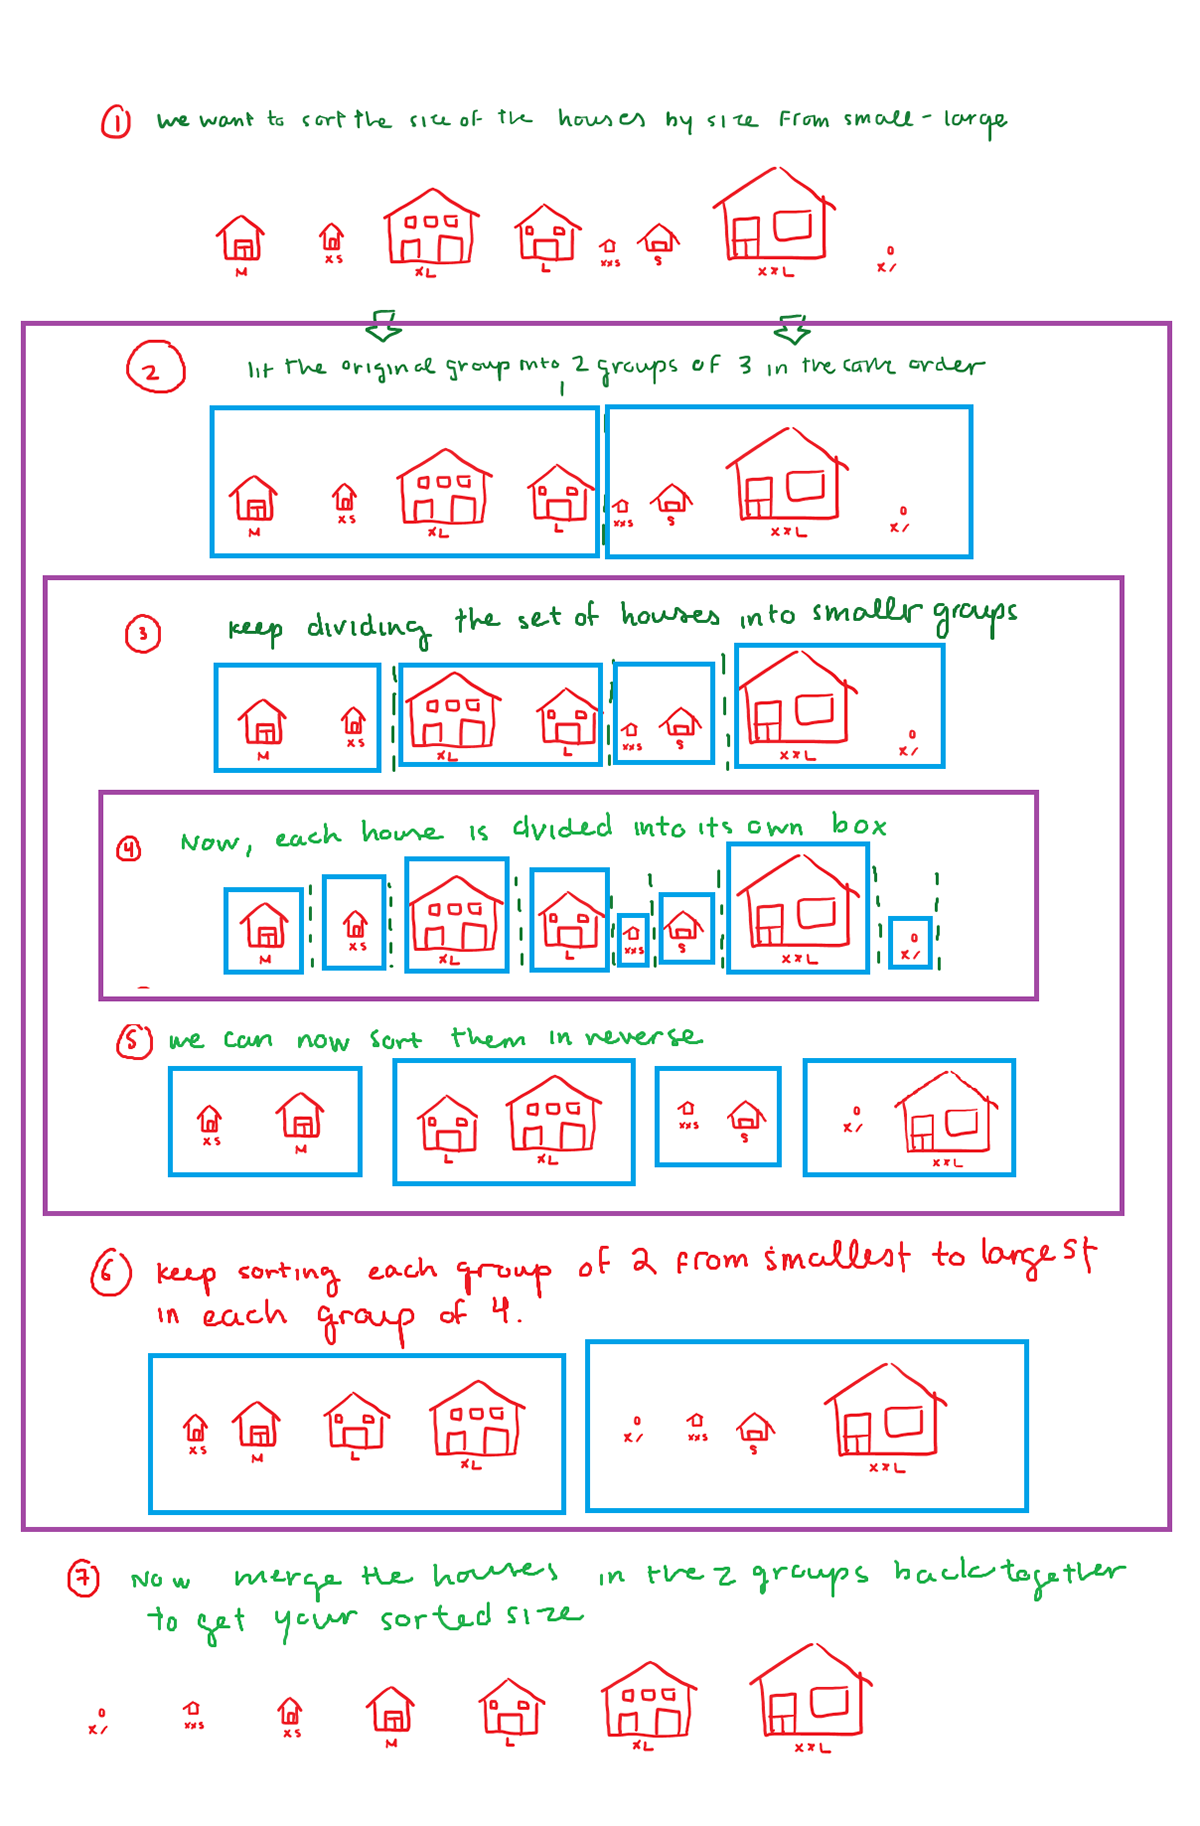 1 we want to sort the size of the houses by size from small - large
M XS XL L XXS S XXL X/
2 lit the original group into 2 groups of 3 in the same order
M XS XL L XXS S XXL X/
3 keep dividing the set of houses into smaller groups
M XS XL L XXS S XXL X/
4 Now, each house is divided into its own box
M XS XL L XXS S XXL X/
5 we can now sort them in reverse
XS M L XL XXS S X/ XXL
6 keep sorting each group of 2 from smallest to largest
in each group of 4.
XS M L XL X/ XXS S XXL
7 Now merge the houses in the 2 groups back together
to get your sorted size
X/ XXS XS M L XL XXL